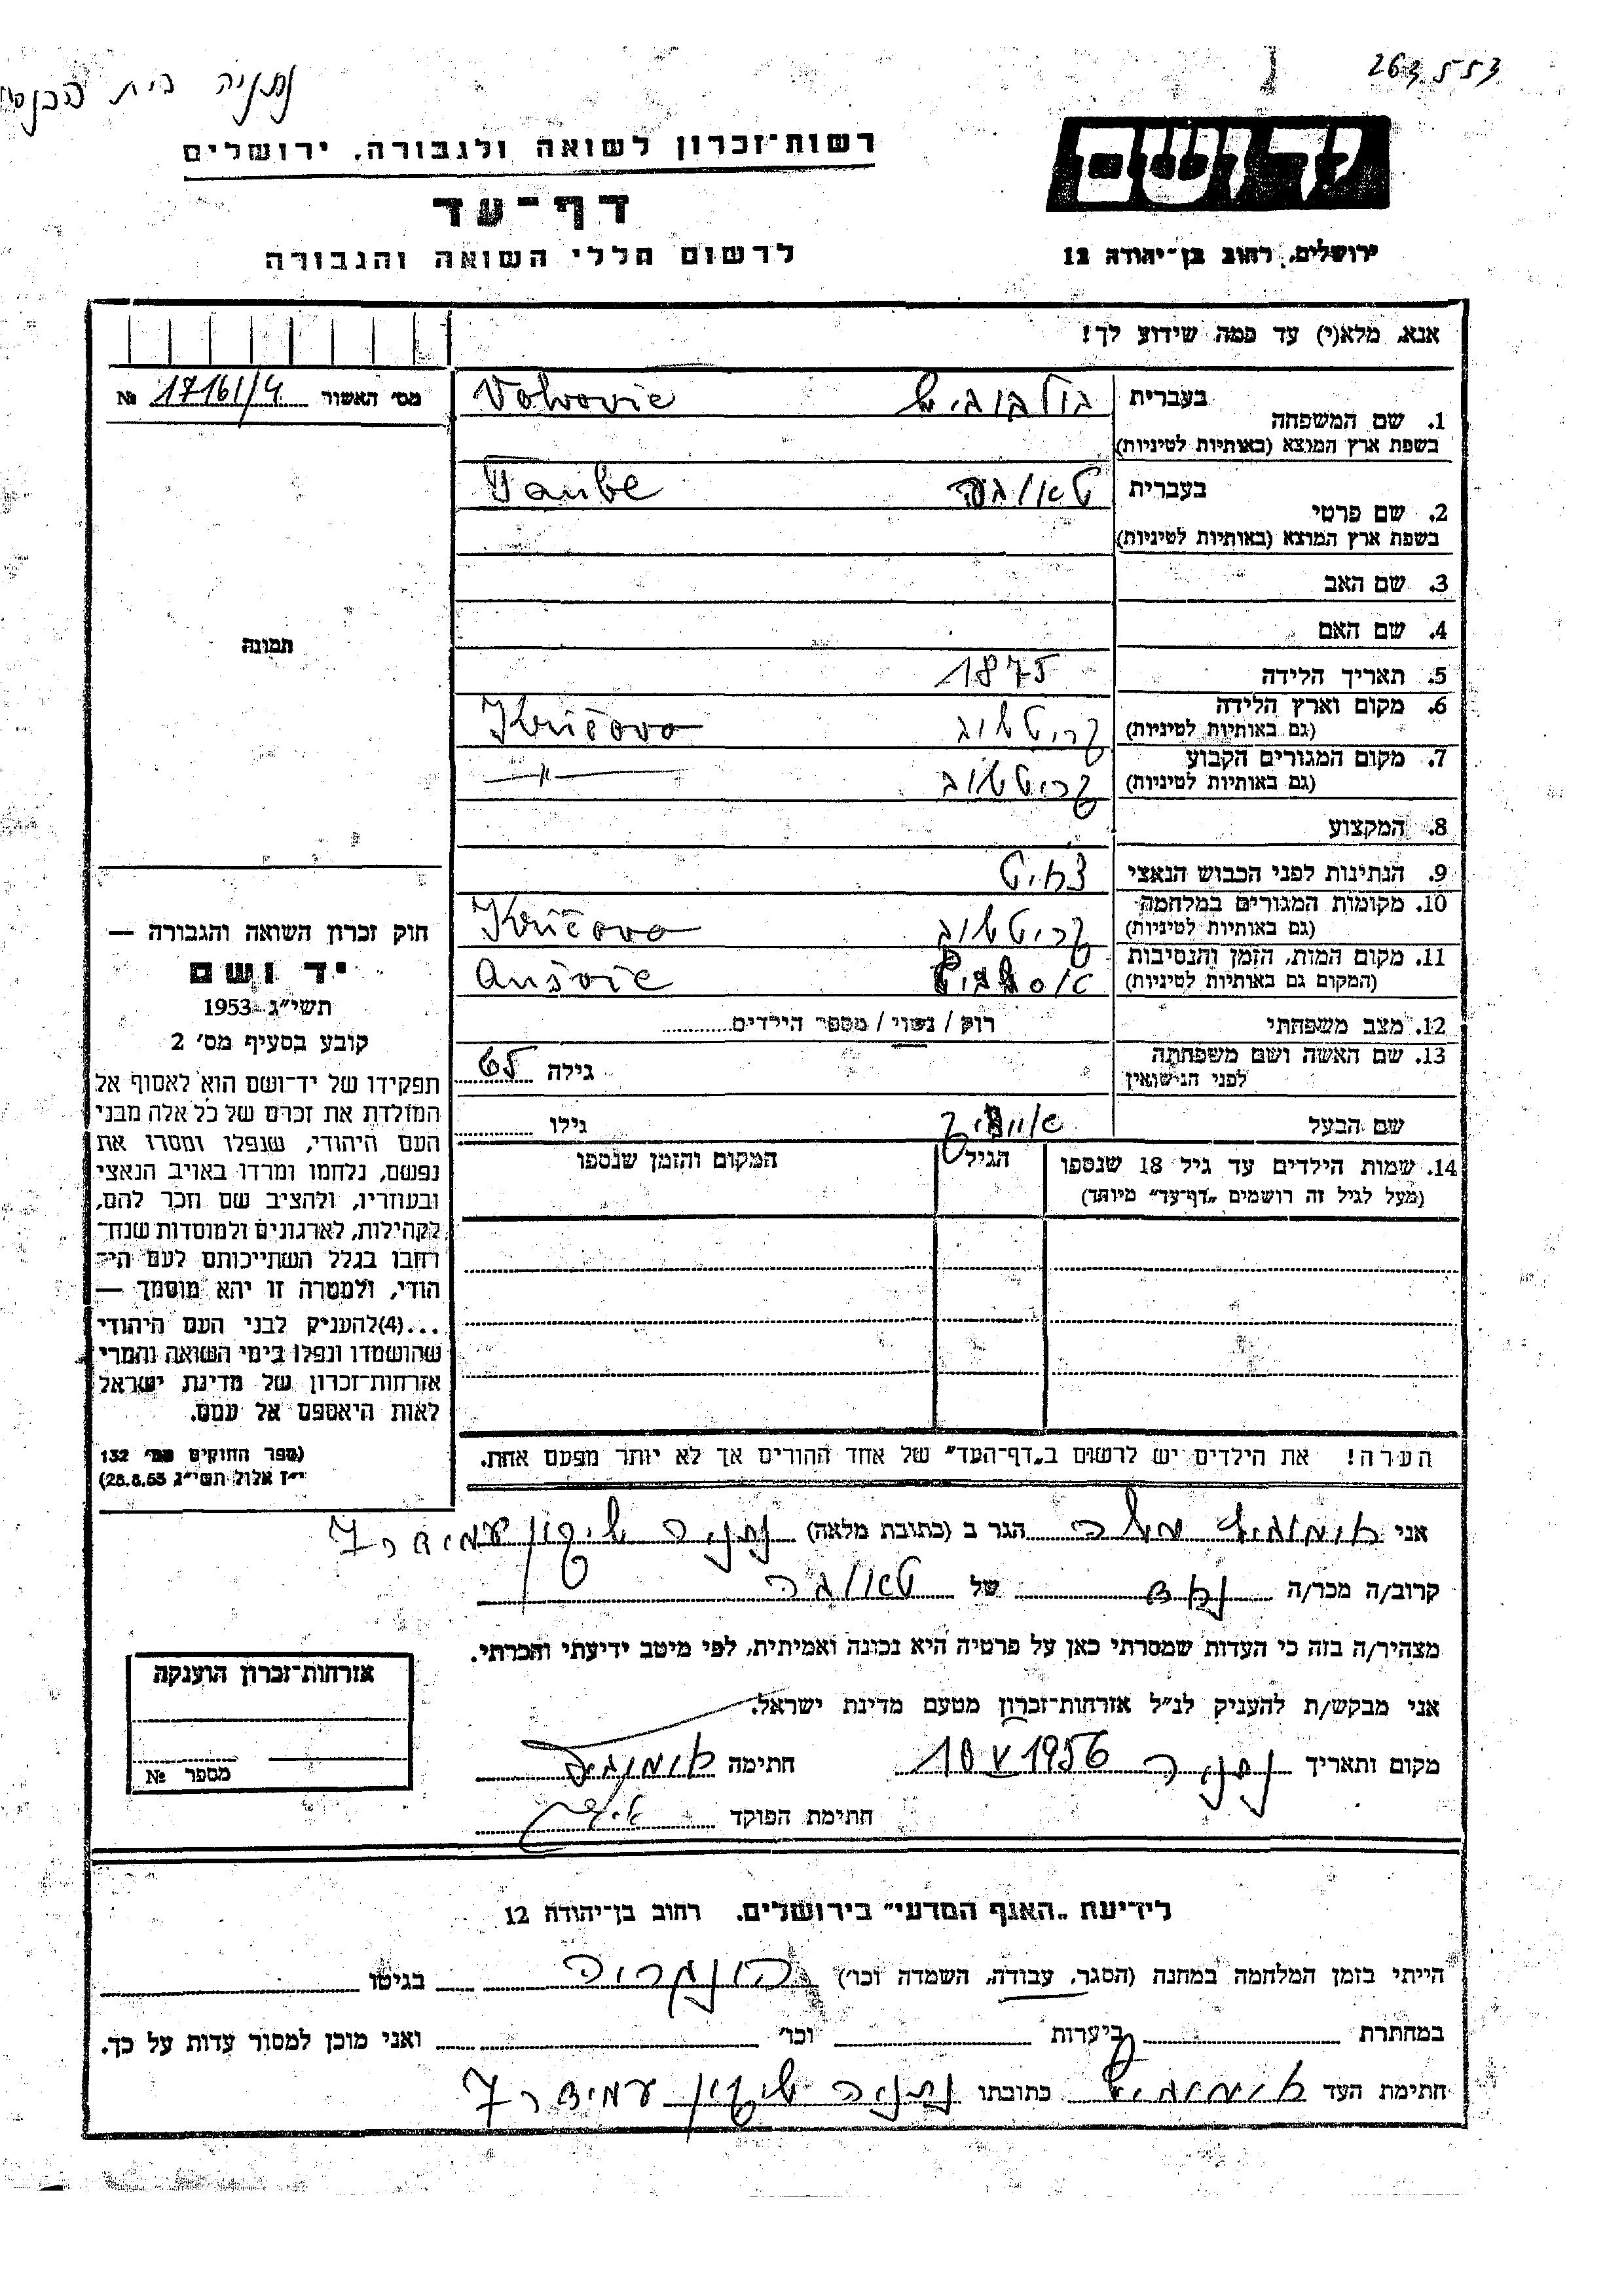 נתניה בית הכנסת
263553
רשות־זכרון לשואה ולגבורה, ירושלים
דף־עד
לרשום חללי השואה והגבורה
יד ושם
ירושלים, רחוב בן־יהודה 12
אנא, מלא(י) עד כמה שידוע לך!
מס' האשור 17161/4 №
1. שם המשפחה בעברית וולבוביץ Volvovic
בשפת ארץ המוצא (באותיות לטיניות)
2. שם פרטי בעברית טאובה Taube
בשפת ארץ המוצא (באותיות לטיניות)
3. שם האב
4. שם האם
תמונה
5. תאריך הלידה 1875
6. מקום וארץ הלידה Kričovo
(גם באותיות לטיניות)
7. מקום המגורים הקבוע —"—
(גם באותיות לטיניות)
8. המקצוע
9. הנתינות לפני הכבוש הנאצי
10. מקומות המגורים במלחמה Kričovo
(גם באותיות לטיניות)
11. מקום המות, הזמן והנסיבות Aušvic
(המקום גם באותיות לטיניות)
12. מצב משפחתי רוק / נשוי / מספר הילדים
13. שם האשה ושם משפחתה גילה 65
לפני הנישואין
שם הבעל גילו
14. שמות הילדים עד גיל 18 שנספו הגיל המקום והזמן שנספו
(מעל לגיל זה רושמים „דף־עד" מיוחד)
הערה! את הילדים יש לרשום ב„דף־העד" של אחד ההורים אך לא יותר מפעם אחת.
חוק זכרון השואה והגבורה —
יד ושם
תשי"ג—1953
קובע בסעיף מס' 2
תפקידו של יד־ושם הוא לאסוף אל
המולדת את זכרם של כל אלה מבני
העם היהודי, שנפלו ומסרו את
נפשם, נלחמו ומרדו באויב הנאצי
ובעוזריו, ולהציב שם וזכר להם,
לקהילות, לארגונים ולמוסדות שנח־
רחבו בגלל השתייכותם לעם הי־
הודי, ולמטרה זו יהא מוסמך —
...(4)להעניק לבני העם היהודי
שהושמדו ונפלו בימי השואה והמרי
אזרחות־זכרון של מדינת ישראל
לאות היאספם אל עמם.
(ספר החוקים מס' 132
י"ז אלול תשי"ג 28.8.53)
אני הגר ב (כתובת מלאה) נתניה שיכון עמידר 7
קרוב/ה מכר/ה נכד של טאובה
מצהיר/ה בזה כי העדות שמסרתי כאן על פרטיה היא נכונה ואמיתית, לפי מיטב ידיעתי והכרתי.
אני מבקש/ת להעניק לנ"ל אזרחות־זכרון מטעם מדינת ישראל.
מקום ותאריך נתניה 10 V 1956 חתימה
חתימת הפוקד
אזרחות־זכרון הוענקה
מספר №
לידיעת „האגף המדעי" בירושלים, רחוב בן־יהודה 12
הייתי בזמן המלחמה במחנה (הסגר, עבודה, השמדה וכו') הונגריה בגיטו
במחתרת ביערות וכו' ואני מוכן למסור עדות על כך.
חתימת העד כתובתו נתניה שיכון עמידר 7